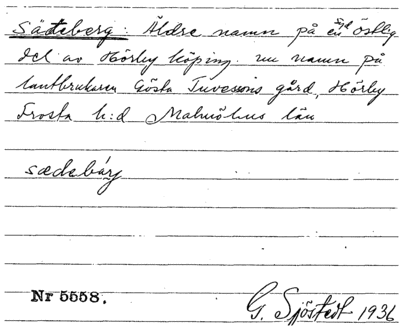 Säteberg: Äldre namn på en sydöstlig
del av Hörby köping. nu namn på
lantbrukaren Gösta Tuvessons gård, Hörby
Frosta h:d Malmöhus län
sædebárj
Nr 5558.
G. Sjöstedt 1936